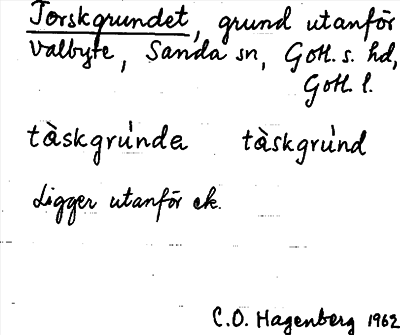 Torskgrundet, grund utanför
Valbyte, Sanda sn, Gotl. s. hd,
Gotl. l.
tàskgrúnda tàskgrúnd
Ligger utanför ek.
C.O. Hagenberg 1962